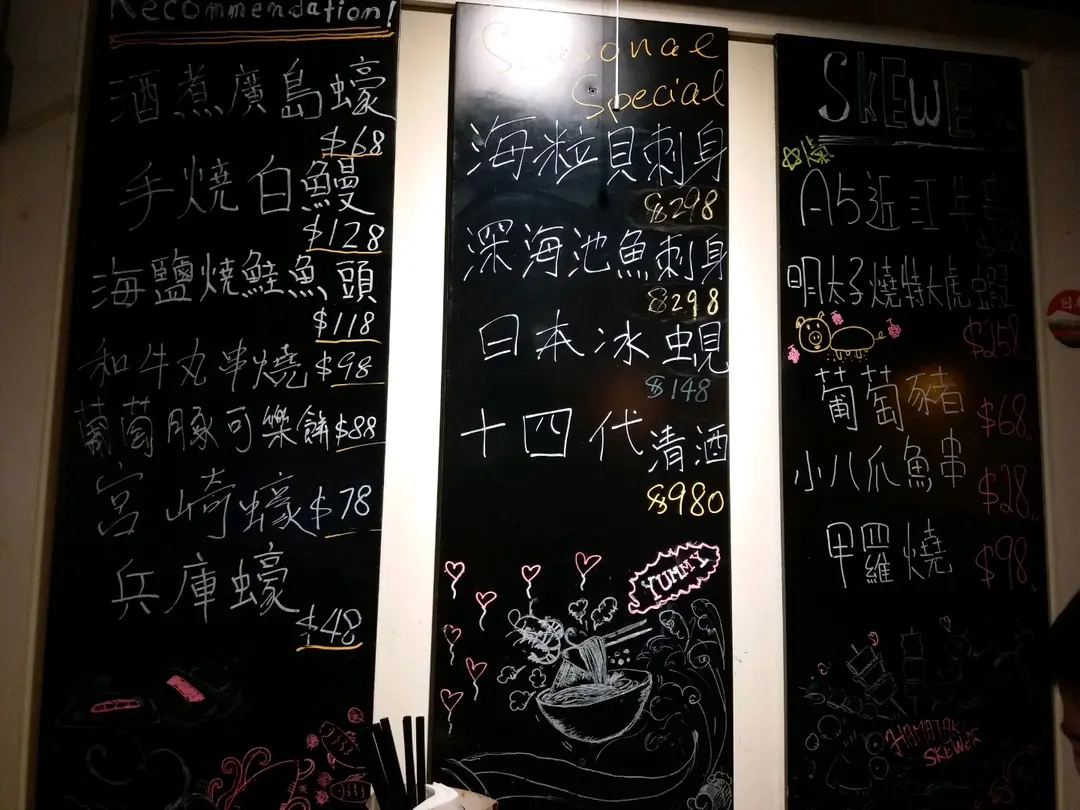 Recommendation!
酒煮廣島蠔
$68
手燒白鰻
$128
海鹽燒鮭魚頭
$118
和牛丸串燒 $98
葡萄豚可樂餅 $88
宮崎蠔 $78
兵庫蠔
$48
Seasonal
Special
海粒貝刺身
$298
深海池魚刺身
$298
日本冰蜆
$148
十四代清酒
$980
YUMMY
SKEWER
A5近江牛
明太子燒特大虎蝦
$258
葡萄豬
$68
小八爪魚串
$28
甲羅燒
$98
SKEWER